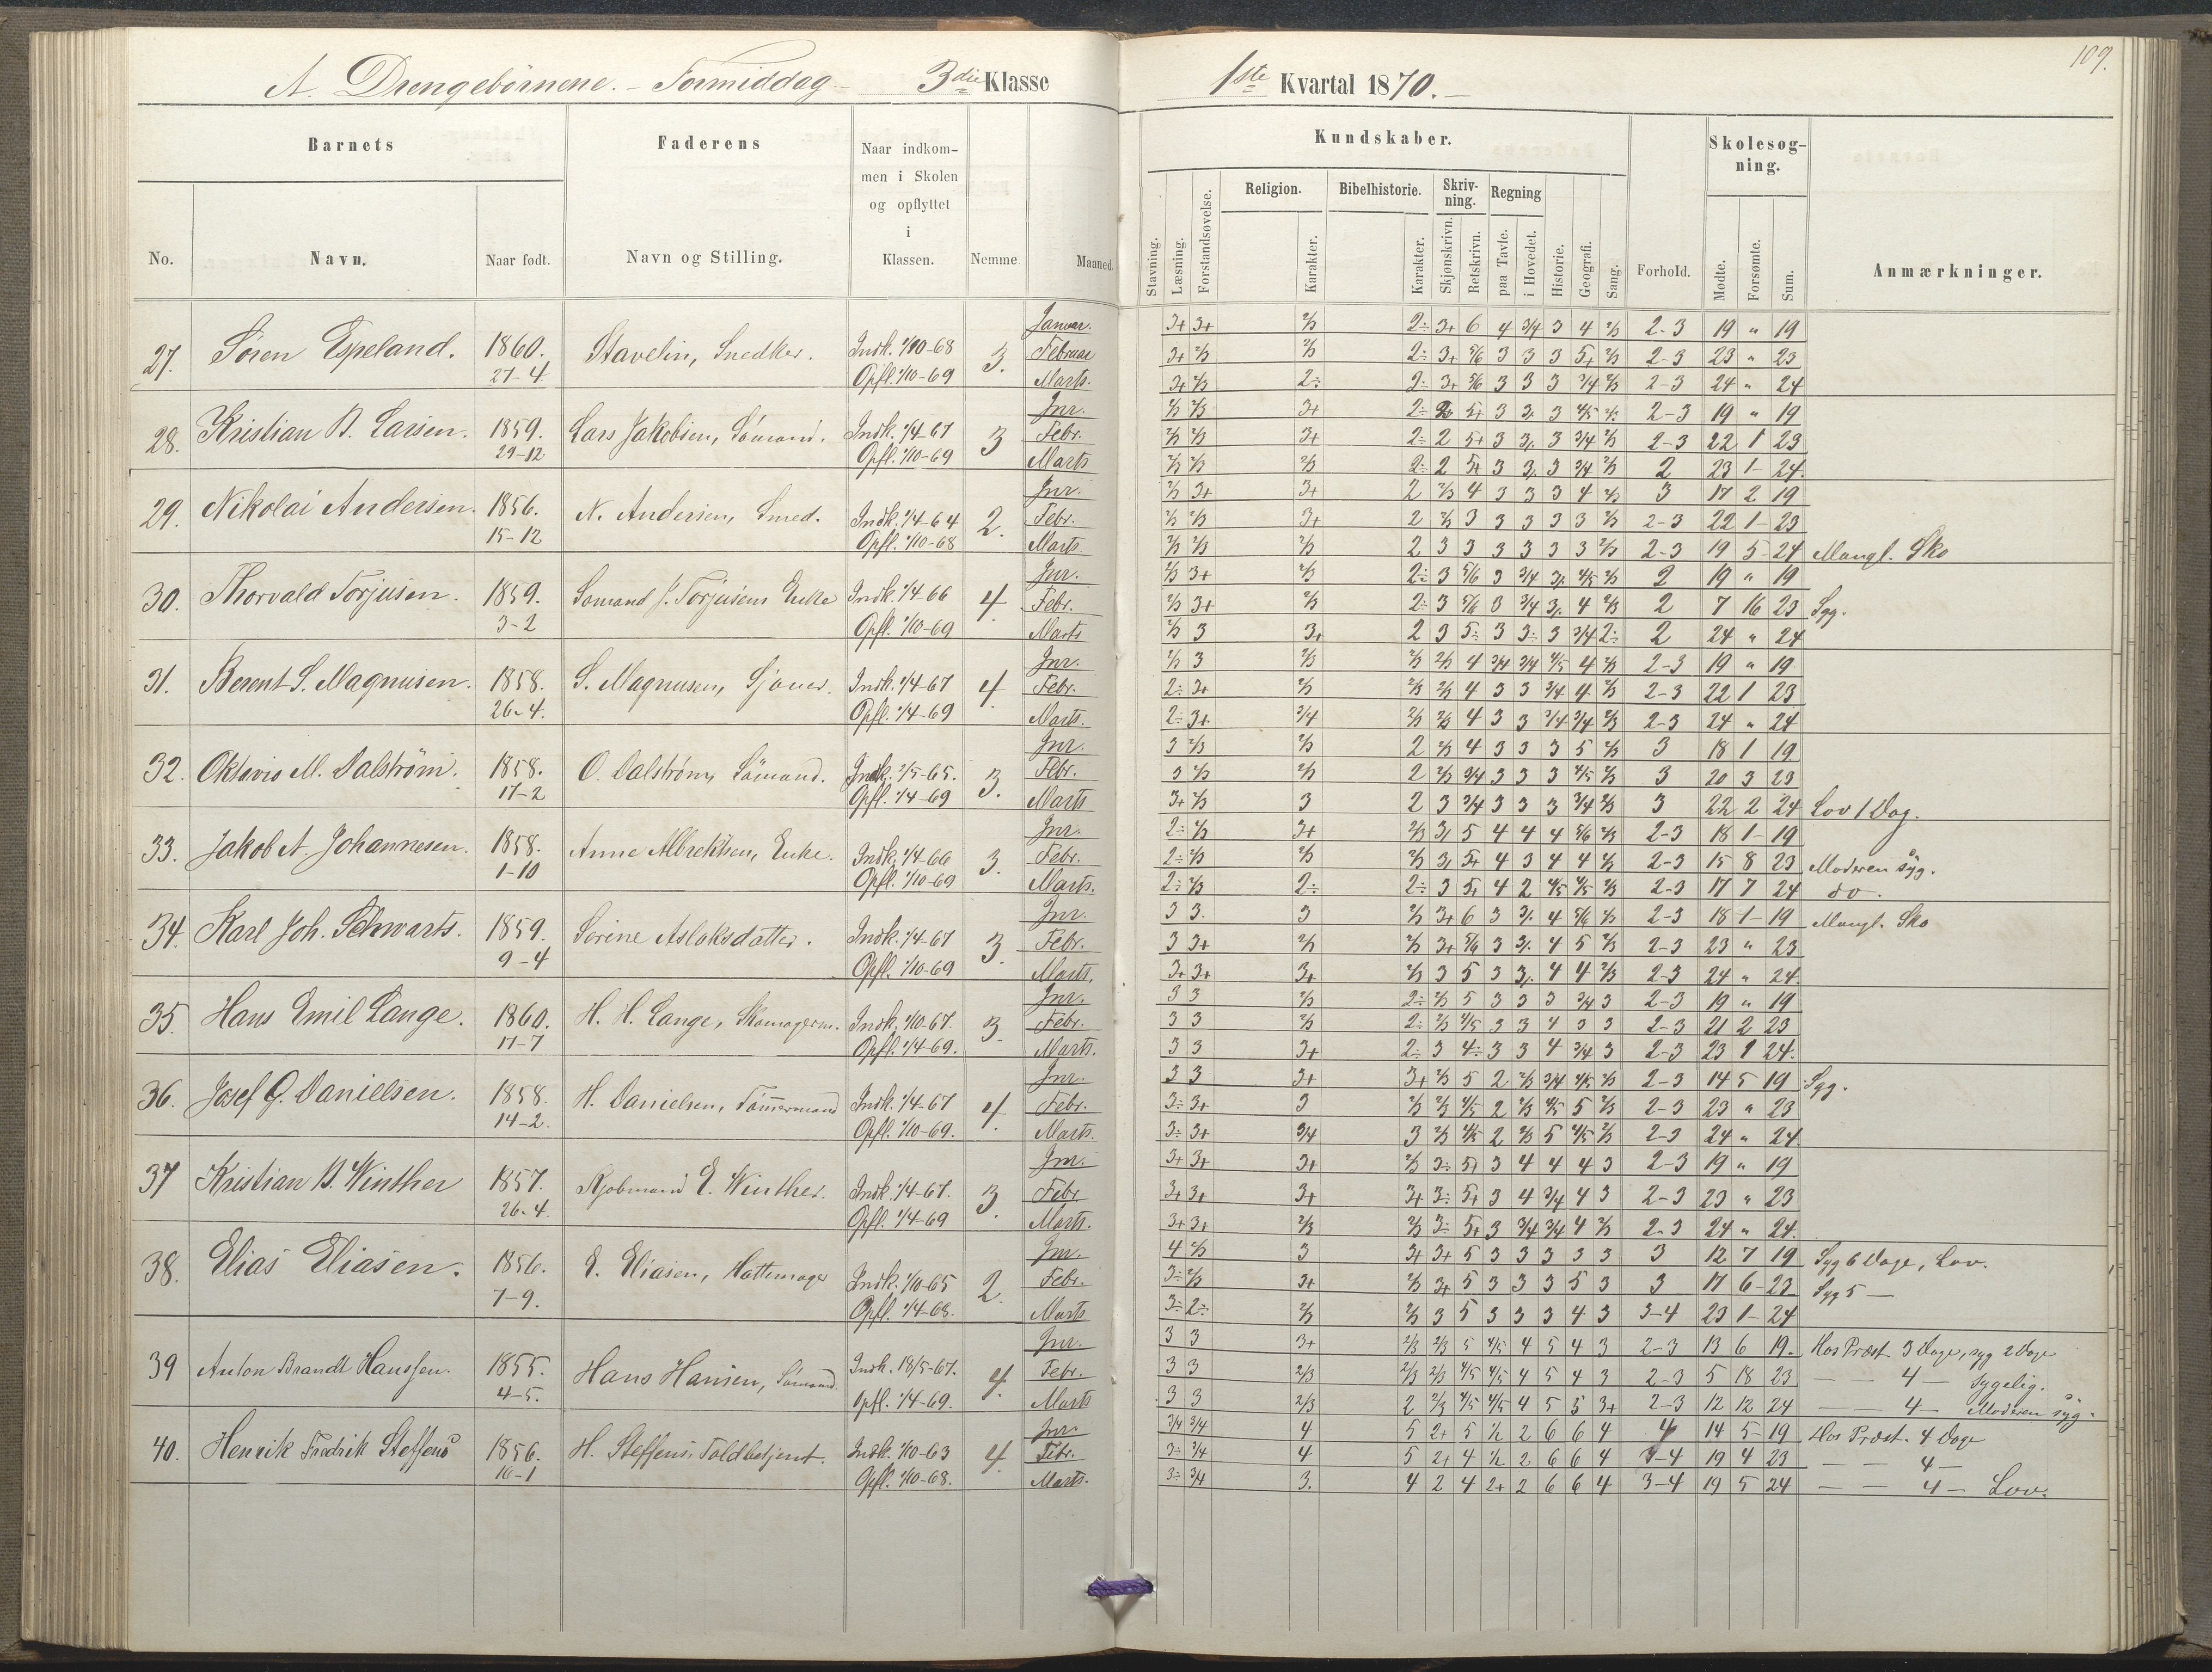 109.
A. Drengebörnene. - Formiddag - 3die Klasse
1ste Kvartal 1870. -
Barnets
Faderens
Naar indkom-
men i Skolen
og opflyttet
i
Klassen.
Nemme.
Maaned.
No.
Navn.
Naar født.
Navn og Stilling.
Kundskaber.
Skolesøg-
ning.
Stavning.
Læsning.
Forstandsøvelse.
Religion.
Karakter.
Bibelhistorie.
Karakter.
Skriv-
ning.
Skjønskrivn.
Retskrivn.
Regning
paa Tavle.
i Hovedet.
Historie.
Geografi.
Sang.
Forhold.
Mødte.
Forsømte.
Sum.
Anmærkninger.
27. Søren Espeland. 1860. 27-4 Stavelin, Snedker. Indk. 1/10-68 Opfl. 1/10-69 3.
Januar. 3+ 3+ 2/3 2÷ 3+ 6 4 3/4 3 4 2/3 2-3 19 " 19
Februar 3+ 2/3 2/3 2÷ 3+ 5/6 3 3 3 5+ 2/3 2-3 23 " 23
Marts. 3+ 2/3 2÷ 2÷ 3+ 5/6 3 3 3 3/4 2/3 2-3 24 " 24
28. Kristian B. Larsen. 1859. 29-12 Lars Jakobsen, Sömand. Indk. 1/4-67 Opfl. 1/10-69 3
Jnr. 2/3 2/3 3+ 2÷ 2 5+ 3 3. 3 4/5 2/3 2-3 19 " 19
Febr. 2/3 2/3 3+ 2÷ 2 5+ 3 3. 3 3/4 2/3 2-3 22 1 23
Marts 2/3 2/3 2/3 2÷ 2 5+ 3 3. 3 3/4 2/3 2 23 1- 24.
29. Nikolai Andersen. 1856. 15-12 N. Andersen, Smed. Indk. 1/4-64 Opfl. 1/10-68 2.
Jnr. 2/3 3+ 3+ 2 2/3 4 3 3 3 4 2/3 3 17 2 19
Febr. 2/3 2/3 3+ 2 2/3 3 3 3 3 3 2/3 2-3 22 1- 23
Marts. 2/3 2/3 2/3 2 3 3 3 3 3 3 2/3 2-3 19 5- 24 Mangl. Sko
30. Thorvald Torjusen. 1859. 3-2 Sömand J. Torjusens Enke Indk. 1/4-66 Opfl. 1/10-69 4.
Jnr. 2/3 3+ 2/3 2÷ 3 5/6 3 3/4 3. 4/5 2/3 2 19 " 19
Febr. 2/3 3+ 2/3 2÷ 3 5/6 3 3/4 3. 4 2/3 2 7 16 23 Syg.
Marts 2/3 3 3+ 2 3 5÷ 3 3÷ 3 3/4 2÷ 2 24 " 24
31. Berent S. Magnusen. 1858. 26-4. S. Magnusen, Sjouer. Indk. 1/4-67 Opfl. 1/4-69 4.
Jnr. 2/3 3 2/3 2/3 2/3 4 3/4 3/4 4/5 4 2/3 2-3 19 " 19
Febr. 2÷ 3+ 2/3 2/3 2/3 4 3 3 3/4 4 2/3 2-3 22 1 23
Marts. 2÷ 3+ 3/4 2/3 2/3 4 3 3 3/4 3/4 2/3 2-3 24 " 24
32. Oktavio M. Dalström. 1858. 17-2 O. Dalström, Sömand. Indk. 2/5-65. Opfl. 1/4-69 3.
Jnr. 3 2/3 2/3 2 2/3 4 3 3 3 5 2/3 3 18 1 19
Febr. 3 2/3 2/3 2 2/3 3/4 3 3 3 4/5 2/3 3 20 3 23
Marts 3+ 2/3 3 2 3 3/4 3 3 3 3/4 2/3 3 22 2 24 Lov 1 Dag.
33. Jakob A. Johannesen. 1858. 1-10 Anne Albrektsen, Enke. Indk. 1/4-66 Opfl. 1/10-69 3.
Jnr. 2÷ 2/3 3+ 2/3 3. 5 4 4 4 5/6 2/3 2-3 18 1- 19
Febr. 2÷ 2/3 2/3 2/3 3. 5+ 4 3 4 4 2/3 2-3 15 8 23 Moderen syg.
Marts. 2÷ 2/3 2÷ 2÷ 3 5. 4 2 4/5 4/5 2/3 2-3 17 7 24 do.
34. Karl Joh. Schwarts. 1859. 9-4 Sorine Aslaksdatter. Indk. 1/4-67 Opfl. 1/10-69 3.
Jnr. 3 3. 3 2/3 3+ 6 3 3. 4 5/6 2/3 2-3 18 1- 19 Mangl. Sko
Febr. 3 3+ 2/3 2/3 3+ 5/6 3 3. 4 5 2/3 2-3 23 " 23
Marts, 3+ 3+ 3+ 2/3 3 5 3 3. 4 4 2/3 2-3 24 " 24.
35. Hans Emil Lange. 1860. 17-7 H. H. Lange, Skomagerm. Indk. 1/10-67. Opfl. 1/4-69. 3.
Jnr. 3 3 2/3 2÷ 2/3 5 3 3 3 3/4 3 2-3 19 " 19
Febr. 3 3 2/3 2÷ 2/3 4/5 3 3 4 3 3 2-3 21 2 23
Marts. 3 3 3+ 2÷ 3 4÷ 3 3 4 3/4 3 2-3 23 1 24.
36. Josef G. Danielsen. 1858. 14-2. H. Danielsen, Tömmermand Indk. 1/4-67 Opfl. 1/10-69. 4.
Jnr. 3 3 3+ 3+ 2/3 5 2 2/3 3/4 4/5 2/3 2-3 14 5 19 Syg.
Febr. 3÷ 3+ 3 2/3 2/3 4/5 2 2/3 4/5 5 2/3 2-3 23 " 23
Marts. 3÷ 3+ 3/4 3 2/3 4/5 2 2/3 5 4/5 2/3 2-3 24 " 24.
37 Kristian B. Winther 1857. 26-4. Kjøbmand E. Winther. Indk. 1/4-67. Opfl. 1/4-69 3.
Jnr. 3+ 3+ 3+ 2/3 3÷ 5+ 3 4 4 4 3 2-3 19 " 19
Febr 3+ 3+ 3+ 3+ 3÷ 5+ 3 4 3/4 4 3 2-3 23 " 23
Marts. 3+ 3+ 2/3 2/3 3÷ 5+ 3 3/4 3/4 4 2/3 2-3 24 " 24.
38. Elias Eliasen. 1856. 7-9. E. Eliasen, Hattemager Indk. 1/10-65 Opfl. 1/4-68. 2.
Jnr. 4 2/3 3 3+ 3+ 5 3 3 3 3 3 3 12 7 19 Syg 6 Dage, Lov.
Febr. 3÷ 2/3 3+ 2/3 3+ 5 3 3 3 5 3 3 17 6- 23 Syg 5 —
Marts 3÷ 2÷ 2/3 2/3 3 5 3 3 3 4 3 3-4 23 1- 24
39 Anton Brandt Hanssen. 1855. 4-5. Hans Hansen, Sömand. Indk. 18/5-67. Opfl. 1/4-69. 4.
Jnr. 3 3 3+ 2/3 2/3 5 4/5 4 5 4 3 2-3 13 6 19. Hos Præst. 3 Dage, syg 2 Dage
Febr. 3 3 2/3 2/3 2/3 4/5 4/5 4 5 4 3 2-3 5 18 23 — — 4 — sygelig.
Marts 3 3 2/3 2 2/3 4/5 4/5 4 5 5 3+ 2-3 12 12 24 — — 4 — Moderen syg.
40. Henrik Fredrik Steffens 1856. 16-1 H. Steffens, Toldbetjent. Indk. 1/10-63 Opfl. 1/10-68. 4.
Jnr. 3/4 3/4 4 5 2+ 5 1/2 2 6 6 4 4 14 5- 19 Hos Præst. 4 Dage
Febr. 3÷ 3/4 4 5 2+ 4 1/2 2 6 6 4 3-4 19 4 23 — — 4 —
Marts. 3÷ 3/4 3. 4 2 4 2+ 2 6 6 4 3-4 19 5 24 — — 4 — Lov.